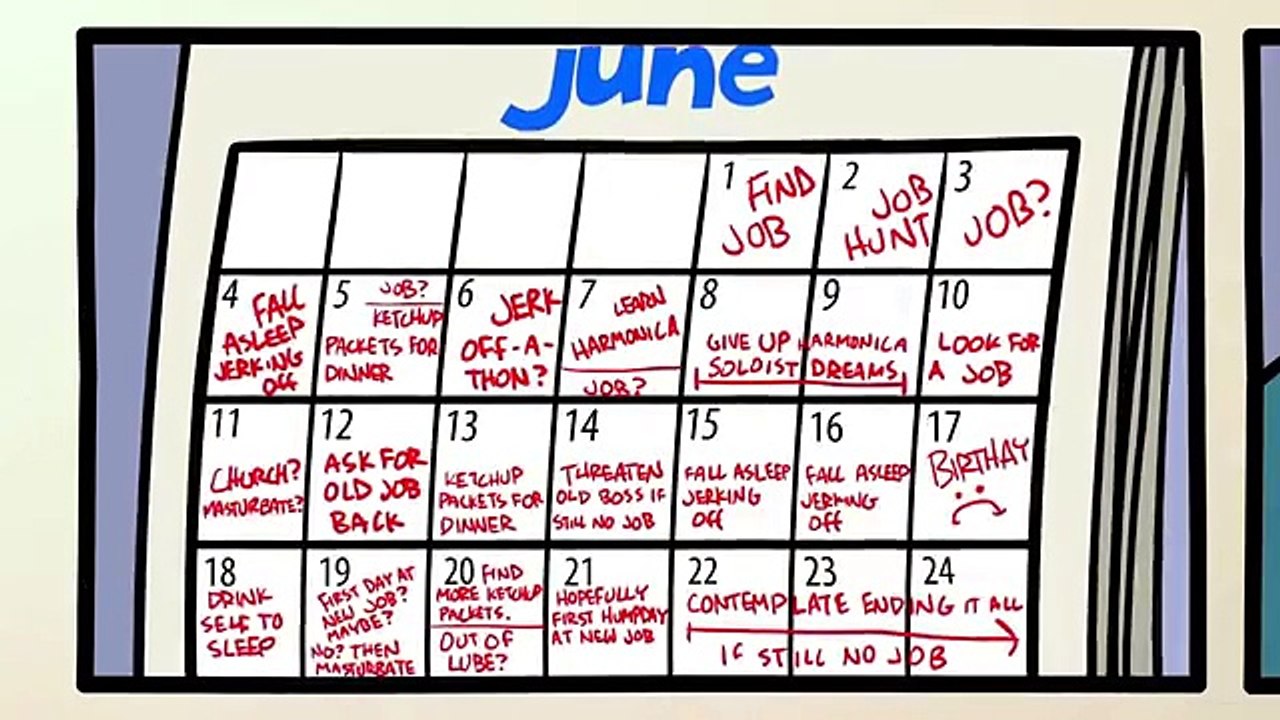 june
1 FIND
JOB
2 JOB
HUNT
3 JOB?
4 FALL
ASLEEP
JERKING
OFF
5 JOB?
KETCHUP
PACKETS FOR
DINNER
6 JERK
OFF-A-
THON?
7 LEARN
HARMONICA
JOB?
8 9
GIVE UP HARMONICA
SOLOIST DREAMS
10
LOOK FOR
A JOB
11
CHURCH?
MASTURBATE?
12
ASK FOR
OLD JOB
BACK
13
KETCHUP
PACKETS FOR
DINNER
14
THREATEN
OLD BOSS IF
STILL NO JOB
15
FALL ASLEEP
JERKING
OFF
16
FALL ASLEEP
JERKING
OFF
17
BIRTHAY
18
DRINK
SELF TO
SLEEP
19
FIRST DAY AT
NEW JOB?
MAYBE?
NO? THEN
MASTURBATE
20 FIND
MORE KETCHUP
PACKETS.
OUT OF
LUBE?
21
HOPEFULLY
FIRST HUMPDAY
AT NEW JOB
22 23 24
CONTEMPLATE ENDING IT ALL
IF STILL NO JOB